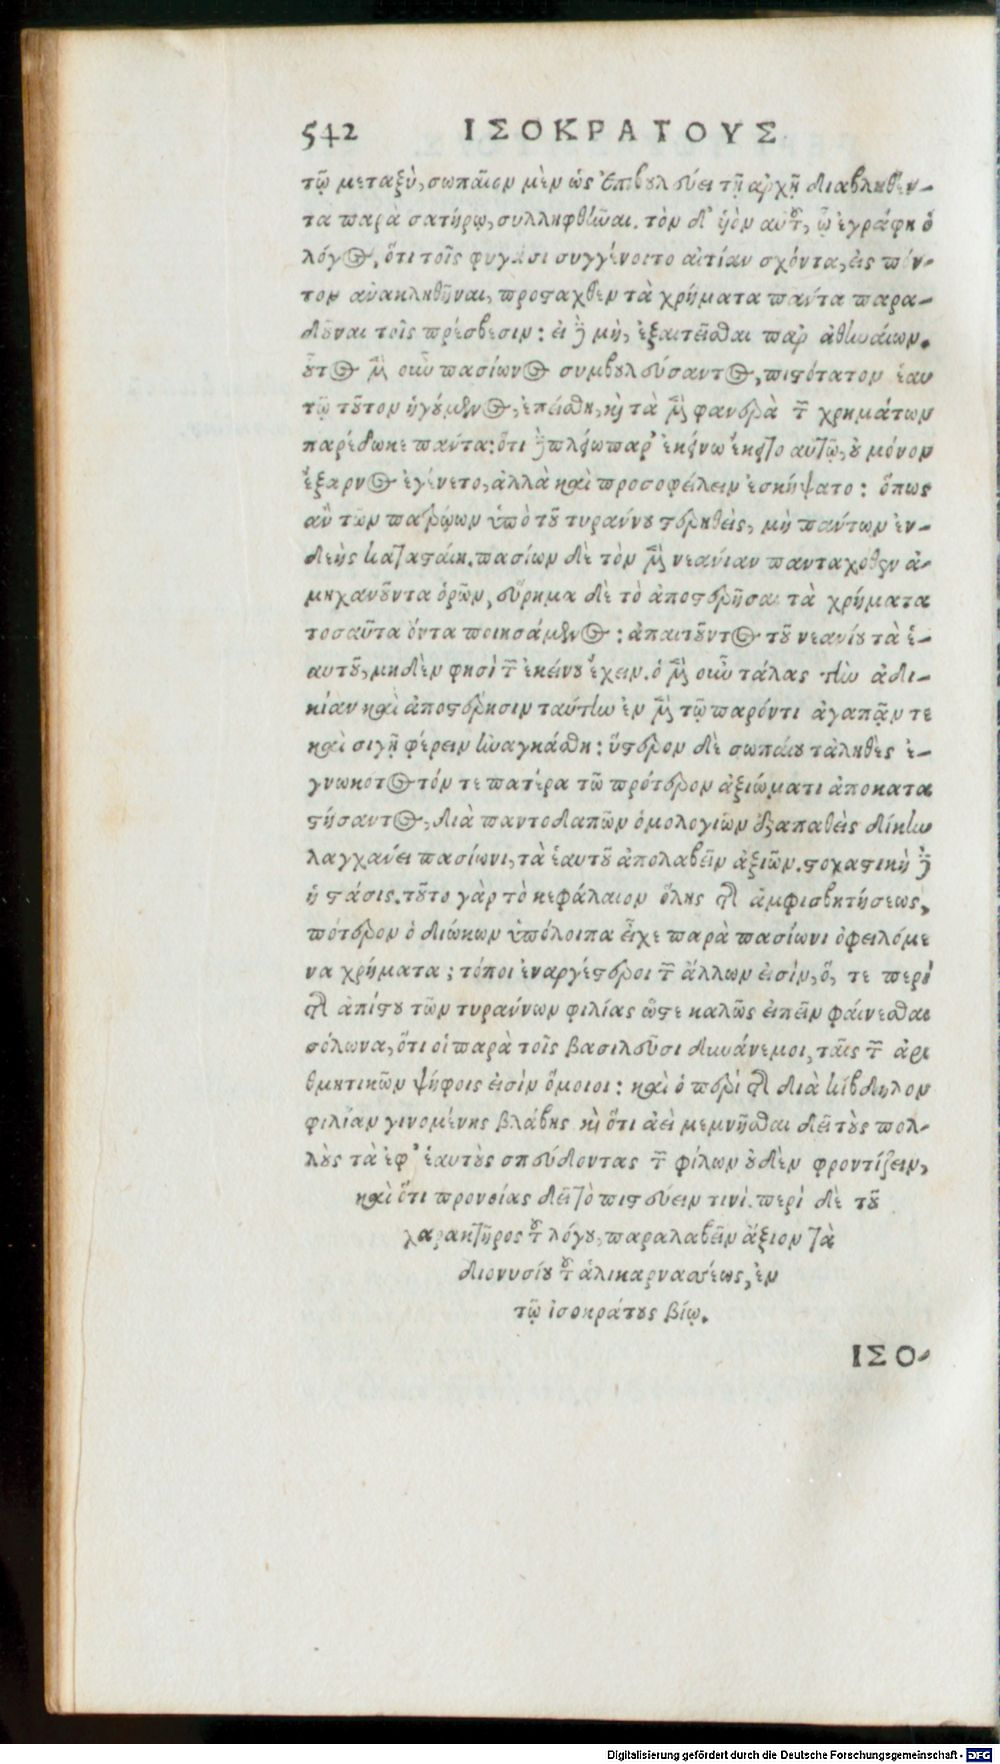 542 ΙΣΟΚΡΑΤΟΥΣ
τῷ μεταξὺ, σωπαῖον μὲν ὡς ἐπιβουλεύει τῇ ἀρχῇ διαβληθέν-
τα παρὰ σατήρῳ, συλληφθῆναι. τὸν δ' ὑὸν αὐτοῦ, ᾧ ἐγράφη ὁ
λόγος, ὅτι τοῖς φυγάσι συγγένοιτο αἰτίαν σχόντα, εἰς πόν-
τον ἀνακληθῆναι, προσταχθὲν τὰ χρήματα πάντα παρα-
δοῦναι τοῖς πρέσβεσιν: εἰ δὲ μὴ, ἐξαιτεῖσθαι παρ ἀθηναίων.
οὗτος μὲν οὖν πασίωνος συμβουλεύσαντος, πιστότατον ἑαυ
τῷ τοῦτον ἡγούμενος, ἐπείσθη, καὶ τὰ μὲν φανερὰ τῶν χρημάτων
παρέδωκε πάντα: ὅτι δὲ πλείω παρ' ἐκείνω ἔκειτο αὐτῷ, οὐ μόνον
ἔξαρνος ἐγένετο, ἀλλὰ καὶ προσοφείλειν ἐσκήψατο: ὅπως
ἂν τῶν πατρῴων ὑπὸ τοῦ τυράννου στερηθεὶς, μὴ πάντων ἐν-
δεὴς κατασταίη. πασίων δὲ τὸν μὲν νεανίαν πανταχόθεν ἀ-
μηχανοῦντα ὁρῶν, εὕρημα δὲ τὸ ἀποστερῆσαι τὰ χρήματα
τοσαῦτα ὄντα ποιησάμενος: ἀπαιτοῦντος τοῦ νεανίου τὰ ἑ-
αυτοῦ, μηδὲν φησὶ τῶν ἐκείνου ἔχειν. ὁ μὲν οὖν τάλας τὴν ἀδι-
κίαν καὶ ἀποστέρησιν ταύτην ἐν μὲν τῷ παρόντι ἀγαπᾷν τε
καὶ σιγῇ φέρειν ἠναγκάσθη: ὕστερον δὲ σωπαίου τἀληθὲς ἐ-
γνωκότος τόν τε πατέρα τῷ πρότερον ἀξιώματι ἀποκατα
στήσαντος, διὰ παντοδαπῶν ὁμολογιῶν ἐξαπαθεὶς δίκην
λαγχάνει πασίωνι, τὰ ἑαυτοῦ ἀπολαβεῖν ἀξιῶν. στοχαστικὴ δὲ
ἡ στάσις. τοῦτο γὰρ τὸ κεφάλαιον ὅλης τῆς ἀμφισβητήσεως,
πότερον ὁ διώκων ὑπόλοιπα εἶχε παρὰ πασίωνι ὀφειλόμε
να χρήματα; τόποι ἐναργέστεροι τῶν ἄλλων εἰσὶν, ὅ, τε περὶ
τῆς ἀπίστου τῶν τυράννων φιλίας ὥστε καλῶς εἰπεῖν φαίνεσθαι
σόλωνα, ὅτι οἱ παρὰ τοῖς βασιλεῦσι δυνάμενοι, ταῖς τῶν ἀρι
θμητικῶν ψήφοις εἰσὶν ὅμοιοι: καὶ ὁ περὶ τῆς διὰ κίβδηλον
φιλίαν γινομένης βλάβης καὶ ὅτι ἀεὶ μεμνῆσθαι δεῖ τοὺς πολ-
λοὺς τὰ ἐφ' ἑαυτοὺς σπεύδοντας τῶν φίλων οὐδὲν φροντίζειν,
καὶ ὅτι προνοίας δεῖ τὸ πιστεύειν τινὶ. περὶ δὲ τοῦ
χαρακτῆρος τοῦ λόγου, παραλαβεῖν ἄξιον τὰ
διονυσίου τοῦ ἁλικαρνασσέως, ἐν
τῷ ἰσοκράτους βίῳ.
ΙΣΟ-
Digitalisierung gefördert durch die Deutsche Forschungsgemeinschaft - DFG